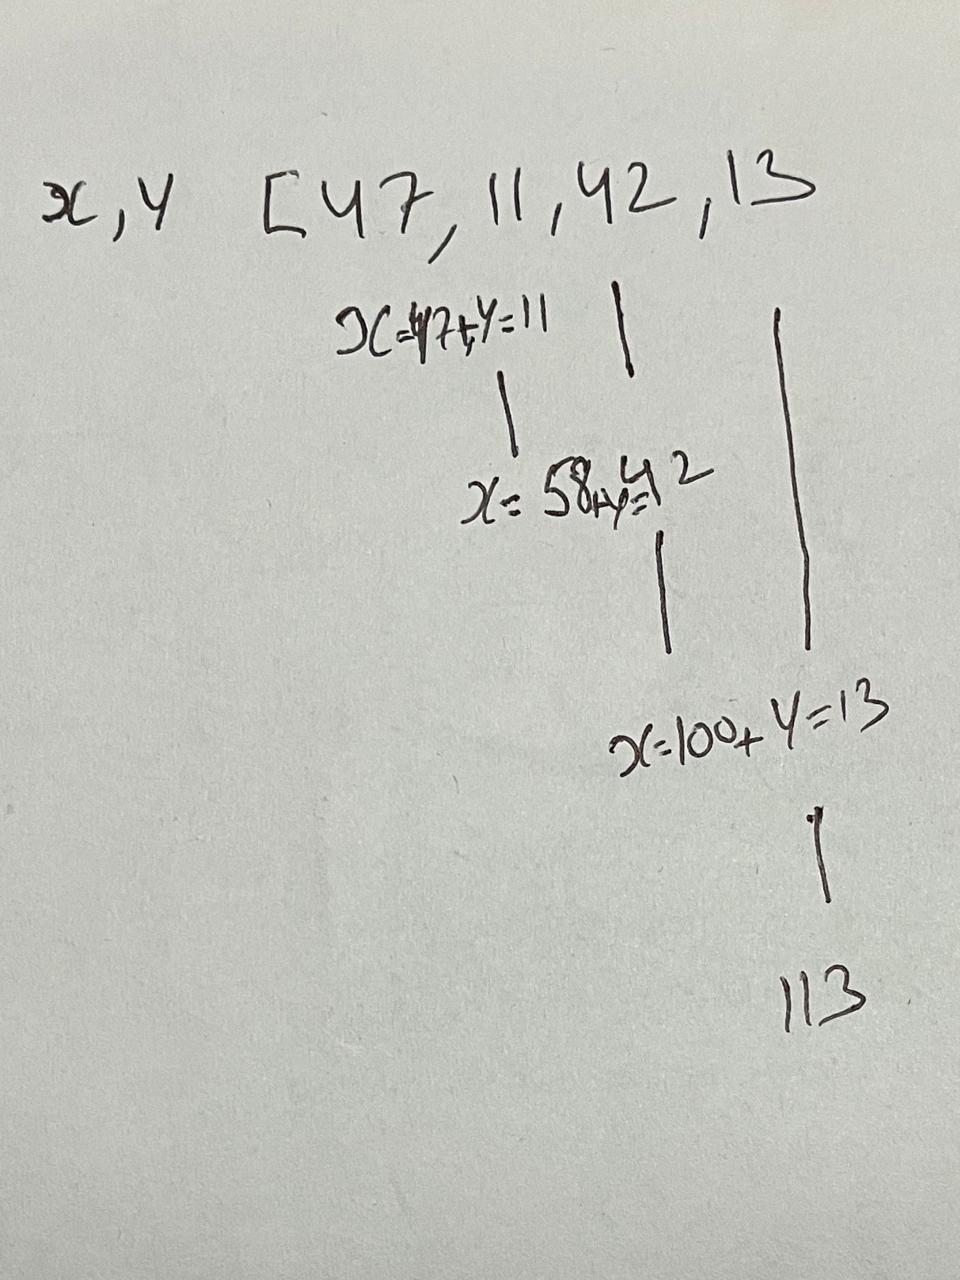 x, y [47, 11, 42, 13
x=47+y=11
x= 58+y=42
x=100+ y=13
113